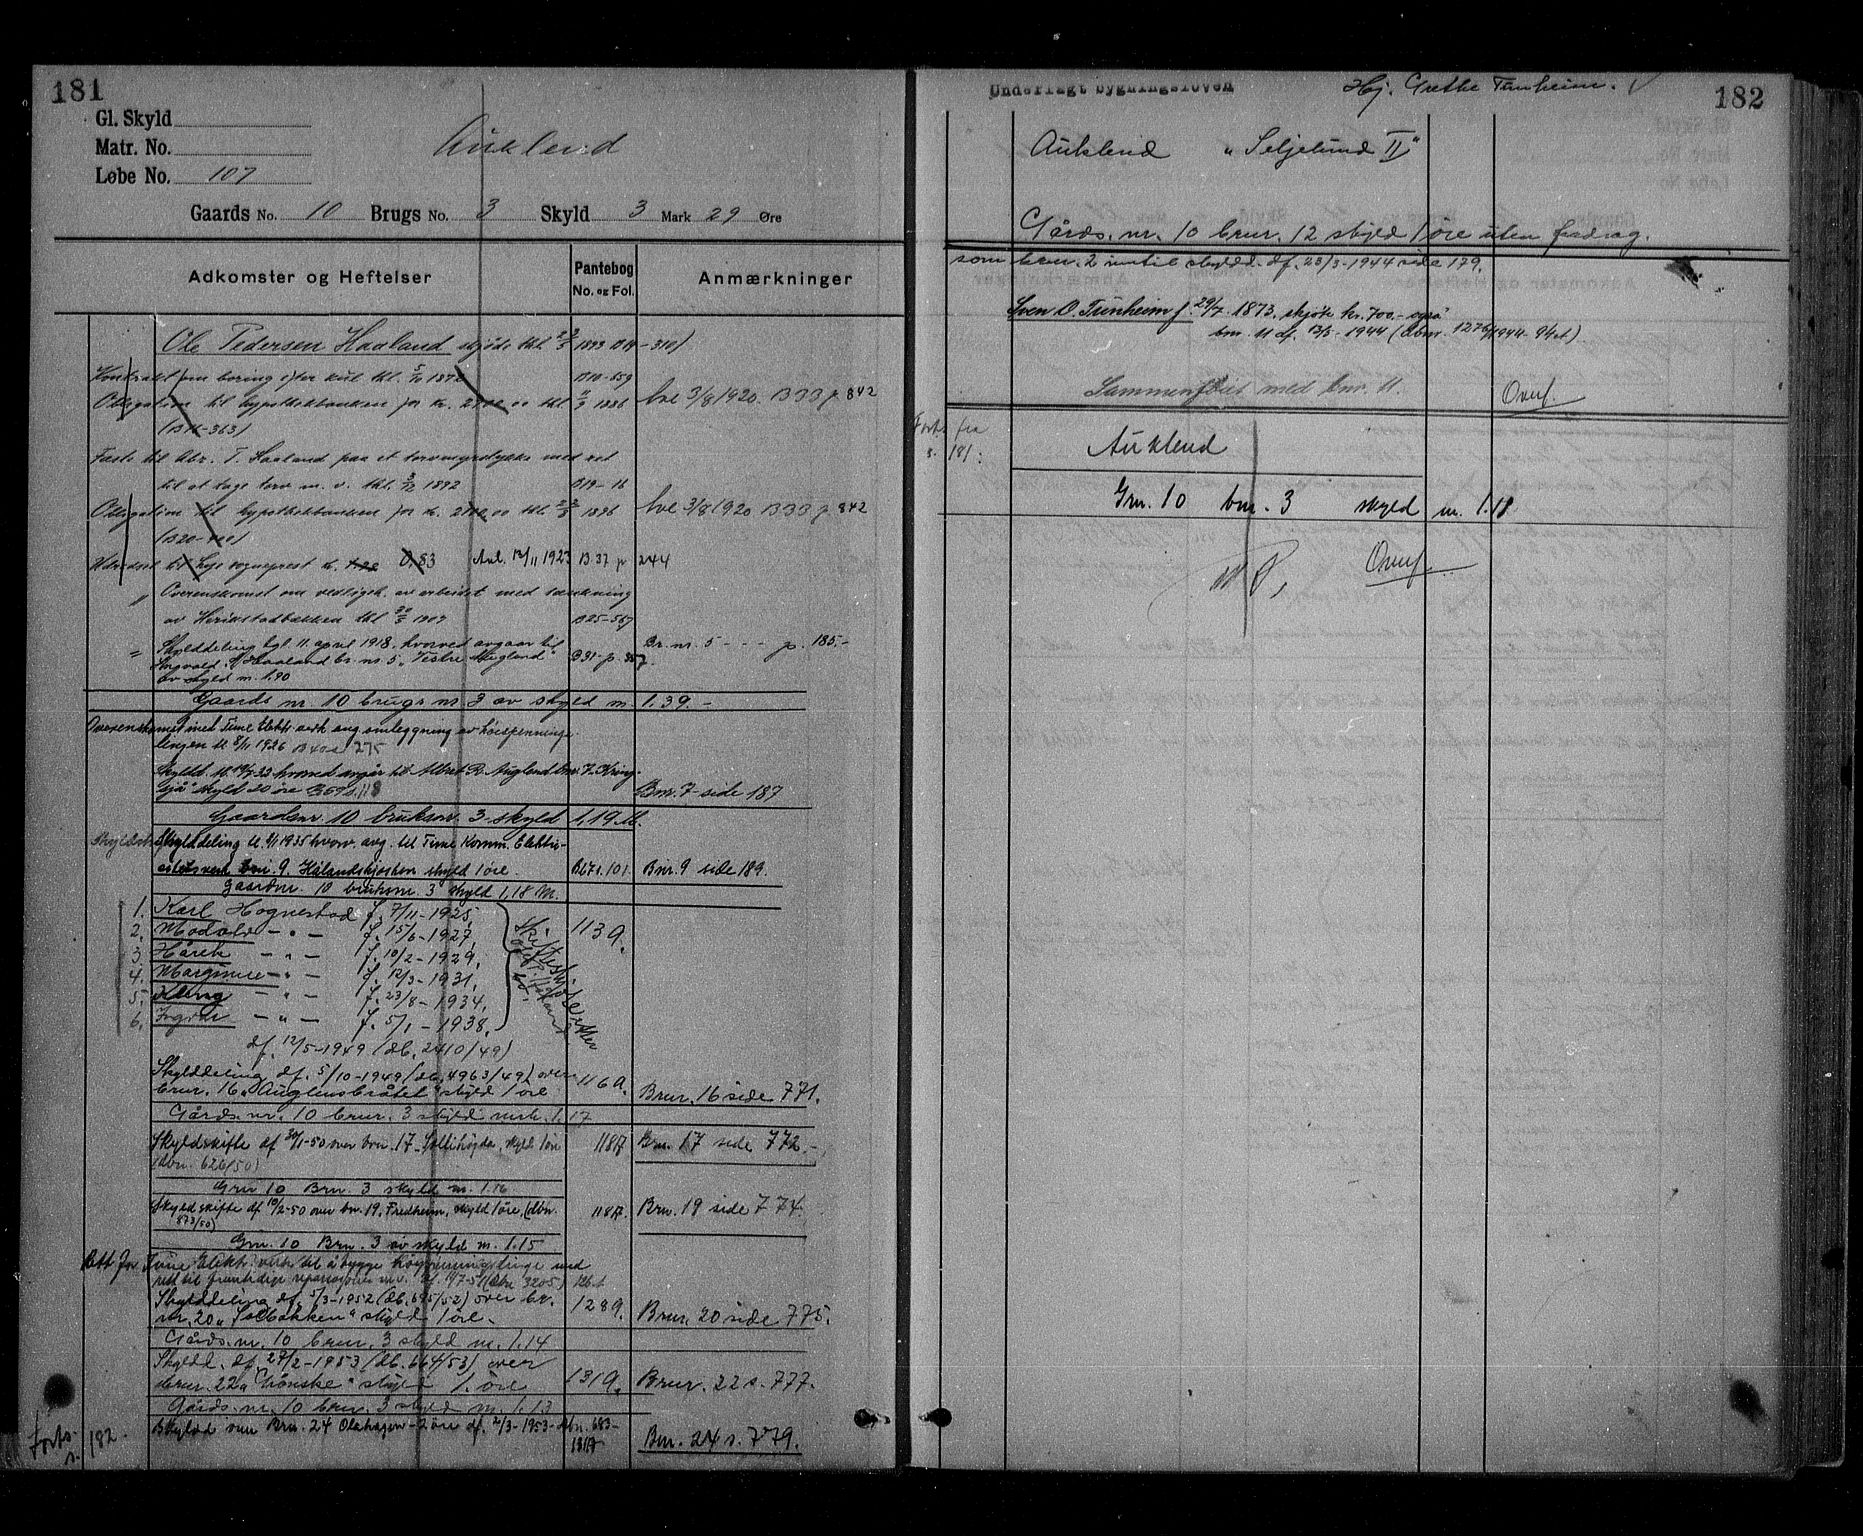 181
Gl. Skyld
Matr. No.
Løbe No. 107
Aukland
Gaards No. 10 Brugs No. 3 Skyld 3 Mark 29 Øre
Adkomster og Heftelser
Pantebog No. og Fol.
Anmærkninger
Ole Pedersen Haaland skjøde thl. 1893 B19-310)
Kontrakt om boring efter kul thl. 1872 B10-559
Obligation til hypothekbanken for kr. 2700,00 thl 1886 lve 3/8 1920. B33 p 842
(B16-363)
Fæste til Abr. T. Haaland paa et torvmyrstykke med ret
til at tage torv m. v. thl. 1892 B19-16
Obligation til hypothekbanken for kr. thl 1896 lve 3/8 1920 B33 p 842
(B20-
til Lye sogneprest k. 0,83 Anl. 12/11 1923 B37 p 244
" Overenskomst om vedligeh. av arbeidet med sænkning
av thl 1907 B25-567
" Skylddeling tgl 11. april 1918, hvorved avgaar til
Haaland br. nr 5 "Vestre B31-p. 357 Br. nr. 5 - - - p. 185.-
av skyld m. 1.90
Gaards nr 10 brugs nr 3 av skyld m. 1.39.-
Overenskomst med Time Elektr verk ang omlegging av høispennings-
linjen tl 8/11 1926 B40s 275
Skyldd. tl. 19/7 33 hvorved avgår til Albert R. Augland bnr. 7. Kring-
sjå" skyld 20 øre B69 s. 118 Bnr. 7 - side 187
Gaardsnr. 10 bruksnr. 3 - skyld 1,19 M.
Skylddeling tl. 1935 hvorv. avg. til Time Komm. Elektri-
sitetsverk bnr. 9. Hålandskjosken skyld 1 øre. B67 s. 101 Bnr. 9 side 189.
Gaardnr. 10 bruksnr. 3 skyld 1,18 M.
1. Karl Hognestad f. 7/11-1925,
2. Modolv - " - f. 15/6-1927,
3. Hårek - " - f. 10/2-1929,
4. Margunn - " - f. 12/3-1931,
5. Kling - " - f. 23/8-1934,
6. Ingvar - " - f. 5/1-1938,
Skifteskjøte etter
1139.
df. 12/5-1949 (db. 2410/49)
Skylddeling df. 5/10-1949 (db. 4963/49) over
brnr. 16 "Auglendsbråtet" skyld 1 øre 1169. Brnr. 16 side 771.
Gårds.nr. 10 brnr. 3 skyld mrk. 1.17
Skyldskifte df 30/1-50 over bnr. 17 "Sollihøyda, skyld 1 øre 118A Bnr. 17 side 772.-
(dbnr. 626/50)
Gnr 10 Bnr. 3 skyld m. 1.16
Skyldskifte df 10/2-50 over bnr. 19, Fredheim, skyld 1 øre, (dbnr. 873/50) 118A. Bnr. 19 side 774.
Gnr. 10 Bnr. 3 av skyld m. 1.15
Rett for Time Elektr. verk til å bygge høyspenningslinje med
rett til framtidige reparasjoner m.v. df. 19/7-51 (dbnr 3205) 126 A
Skylddeling df. 5/3-1952 (db. 695/52) over br.
nr. 20 "Solbakken" skyld 1 øre. 1289. Brnr. 20 side 775.
Gårds.nr. 10 brnr. 3 skyld m. 1.14
Skyldd. df 27/2-1953 (db. 664/53) over
brnr. 22 " skyld 1. øre 1319. Brnr. 22 s. 777.
Gårds.nr. 10 brnr. 3 skyld m. 1.13
Skyldd over Bnr. 24 Olahagen - 2 øre df. 2/3-1953 - dbn. 683- 131A Bnr. 24 s. 779.
Forts. s. 182.
Underlagt bygningsloven
Hj. Grethe Tunheim.
182
Auklend "Seljelund II"
Gårds.nr. 10 brnr. 12 skyld 1 øre uten fradrag.
som brnr. 2 inntil skyldd. df. 23/3-1944 side 179.
Sven O. Tunheim f. 29/7 1873, skjøte kr. 700.- også
bnr. 11 df. 13/5-1944 (dbnr. 1276/1944. 94A).
Sammenføiet med bnr. 11. Overf.
Forts fra s. 181:
Auklend
Gnr. 10 bnr. 3 skyld m. 1.18
Overf